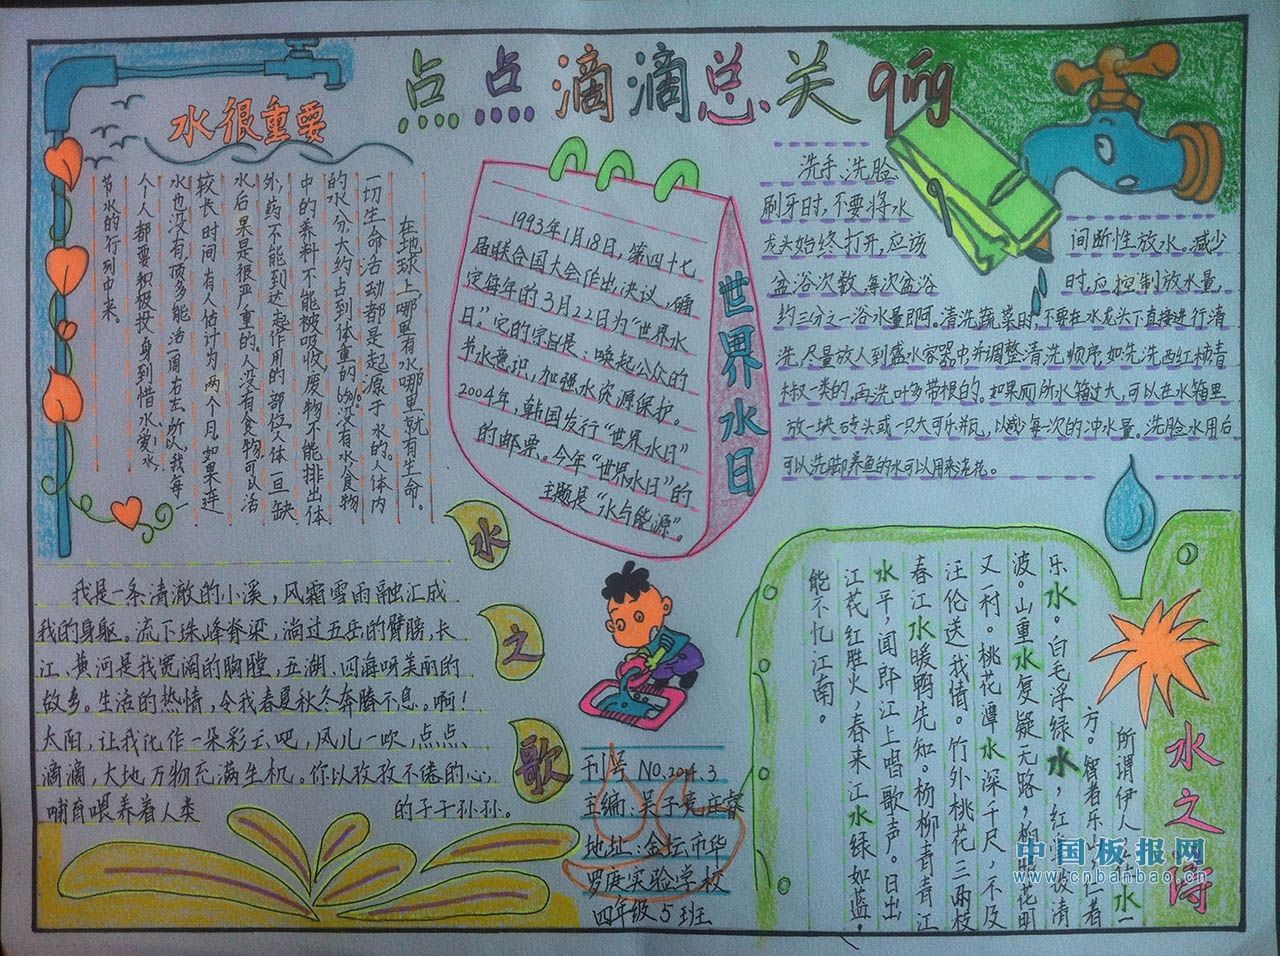 点点滴滴总关qíng
水很重要
在地球上,哪里有水,哪里就有生命。
一切生命活动都是起源于水的。人体内
的水分,大约占到体重的65%。没有水,食物
中的养料不能被吸收,废物不能排出体
外,药不能到达起作用的部位。人体一旦缺
水后果是很严重的。人没有食物可以活
较长时间,有人估计为两个月,如果连
水也没有,顶多能活一周左右。所以,我每一
个人都要积极投身到惜水、爱水、
节水的行列中来。
1993年1月18日,第四十七
届联合国大会作出决议,确
定每年的3月22日为“世界水
日”。它的宗旨是:唤起公众的
节水意识,加强水资源保护。
2004年,韩国发行“世界水日”
的邮票。今年“世界水日”的
主题是“水与能源”。
世界水日
洗手、洗脸、
刷牙时,不要将水
龙头始终打开,应该
间断性放水。减少
盆浴次数,每次盆浴
时,应控制放水量,
约三分之一浴水量即可。清洗蔬菜时,不要在水龙头下直接进行清
洗,尽量放入到盛水容器中,并调整清洗顺序,如先洗西红柿青
椒一类的,再洗叶多带根的。如果厕所水箱过大,可以在水箱里
放一块砖头或一只大可乐瓶,以减少每一次的冲水量。洗脸水用后
可以洗脚,养鱼的水可以用来浇花。
水之歌
我是一条清澈的小溪,风霜雪雨融汇成
我的身躯。流下珠峰脊梁,淌过五岳的臂膀,长
江、黄河是我宽阔的胸膛,五湖、四海呀美丽的
故乡。生活的热情,令我春夏秋冬奔腾不息。啊!
太阳,让我化作一朵彩云吧,风儿一吹,点点、
滴滴,大地万物充满生机。你以孜孜不倦的心,
哺育喂养着人类
的子子孙孙。
刊号 NO.2014.3
主编:吴子竞 庄睿
地址:金坛市华
罗庚实验学校
四年级5班
水之诗
所谓伊人,
水一
方。智者乐水,仁者
乐水。白毛浮绿水,红掌拨清
波。山重水复疑无路,柳暗花明
又一村。桃花潭水深千尺,不及
汪伦送我情。竹外桃花三两枝,
春江水暖鸭先知。杨柳青青江
水平,闻郎江上唱歌声。日出
江花红胜火,春来江水绿如蓝,
能不忆江南。
中国板报网
www.cnbanbao.cn